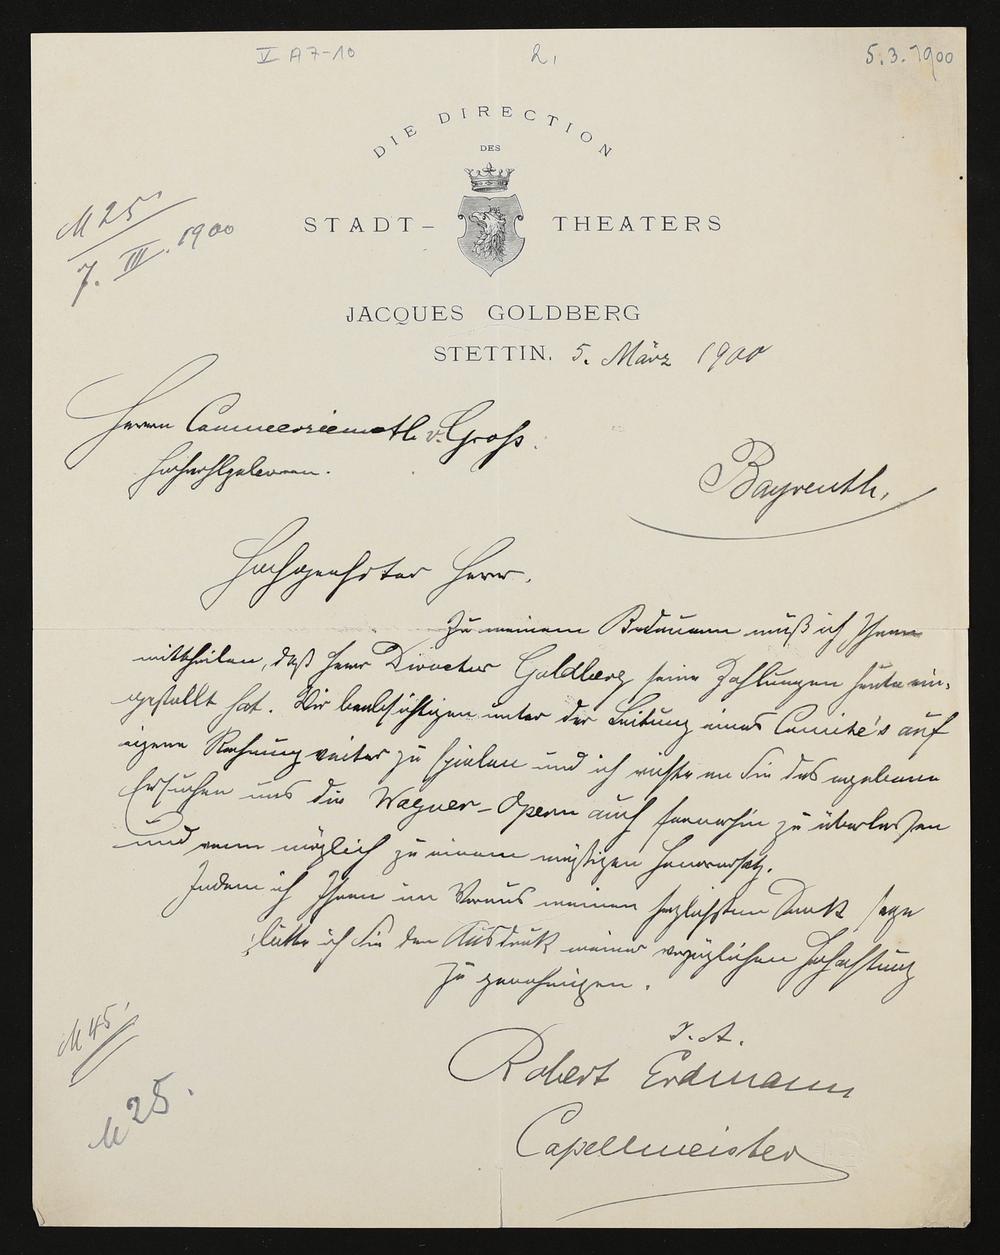 V A 7-10
2,
5.3.1900
DIE DIRECTION
DES
STADT- THEATERS
JACQUES GOLDBERG
STETTIN. 5. März 1900
M 25
7. III. 1900
Herrn Commerzienrath v. Groß.
Hochwohlgeboren.
Bayreuth,
Hochgeehrter Herr.
Zu meinem Bedauern muß ich Ihnen
mittheilen, daß Herr Director Goldberg seine Zahlungen heute ein-
gestellt hat. Wir beabsichtigen unter der Leitung eines Comité's auf
eigene Rechnung weiter zu spielen und ich richte an Sie das ergebene
Ersuchen uns die Wagner-Opern auch fernerhin zu überlassen
und wenn möglich zu einem mäßigen Honorarsatz.
Indem ich Ihnen im Voraus meinen herzlichsten Dank sage
bitte ich Sie den Ausdruck meiner vorzüglichen Hochachtung
zu genehmigen.
I. A.
Robert Erdmann
Capellmeister
M 45
M 25.